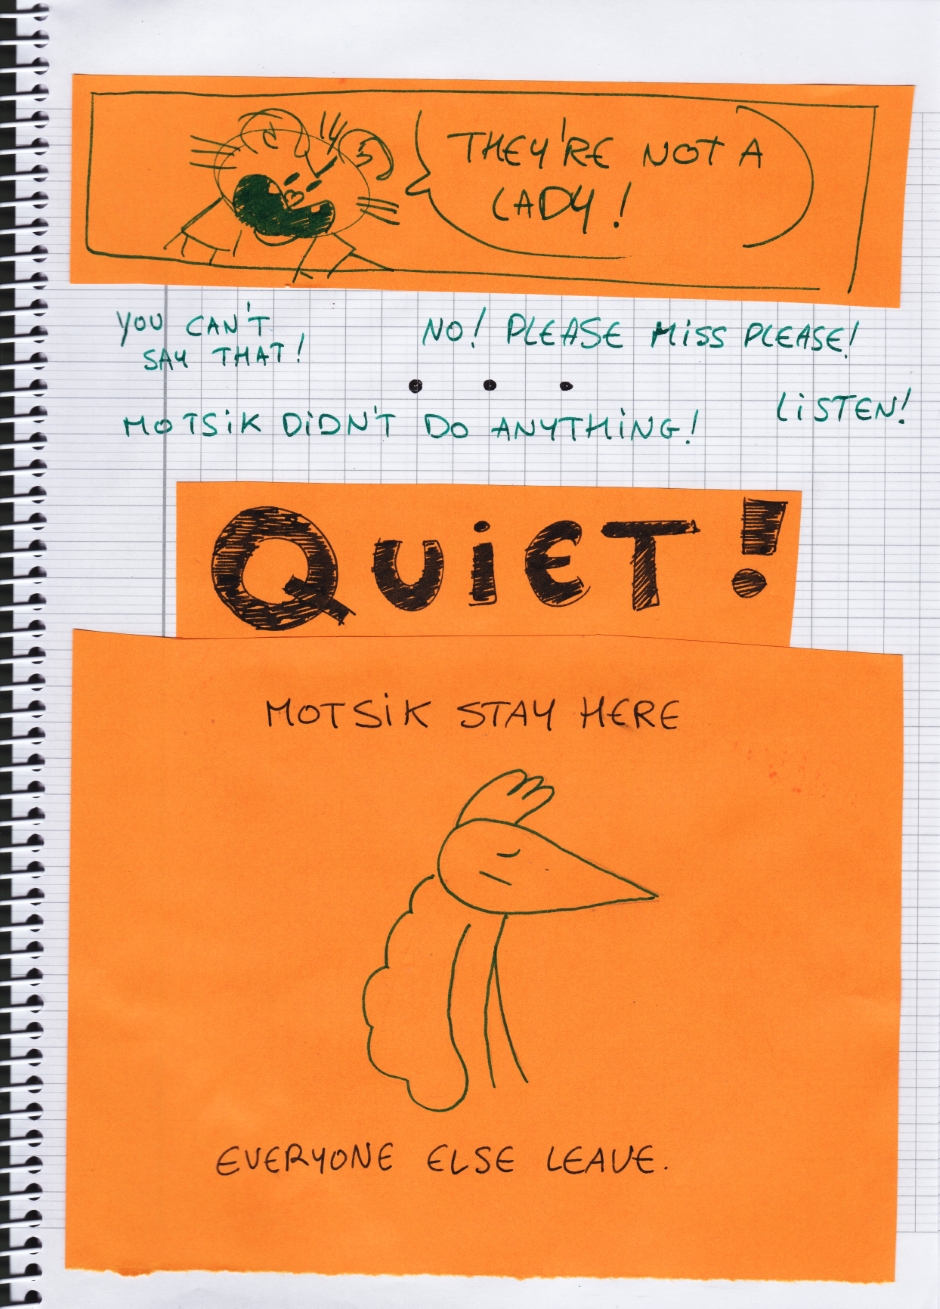 THEY'RE NOT A
LADY!
YOU CAN'T
SAY THAT!
NO! PLEASE MISS PLEASE!
• • •
LISTEN!
MOTSIK DIDN'T DO ANYTHING!
QUIET!
MOTSIK STAY HERE
EVERYONE ELSE LEAVE.